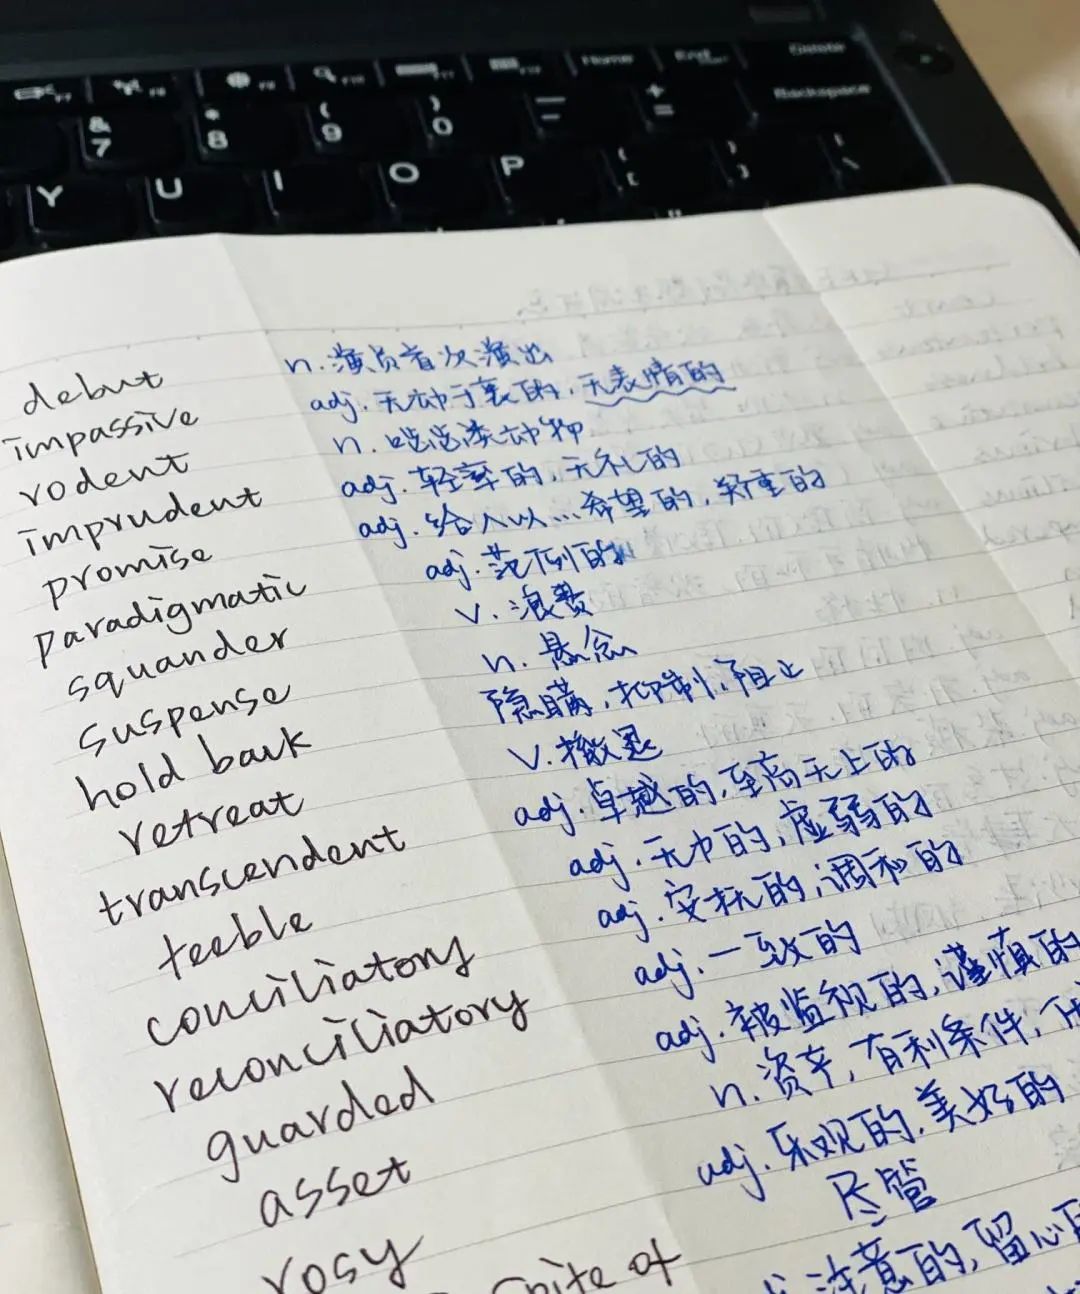 F7 F8 F9 F10 F11 F12 Home End Delete
& 7 * 8 ( 9 ) 0 — - + = Backspace
Y U I O P { [ } ] | \
debut n. 演员首次演出
impassive adj. 无动于衷的, 无表情的
rodent n. 啮齿类动物
imprudent adj. 轻率的, 无礼的
promise adj. 给人以…希望的, 郑重的
paradigmatic adj. 范例的
squander v. 浪费
suspense n. 悬念
hold back 隐瞒, 抑制, 阻止
retreat v. 撤退
transcendent adj. 卓越的, 至高无上的
feeble adj. 无力的, 虚弱的
conciliatory adj. 安抚的, 调和的
reconciliatory adj. 一致的
guarded adj. 被监视的, 谨慎的
asset n. 资产, 有利条件,
rosy adj. 乐观的, 美好的
spite of 尽管
注意的, 留心